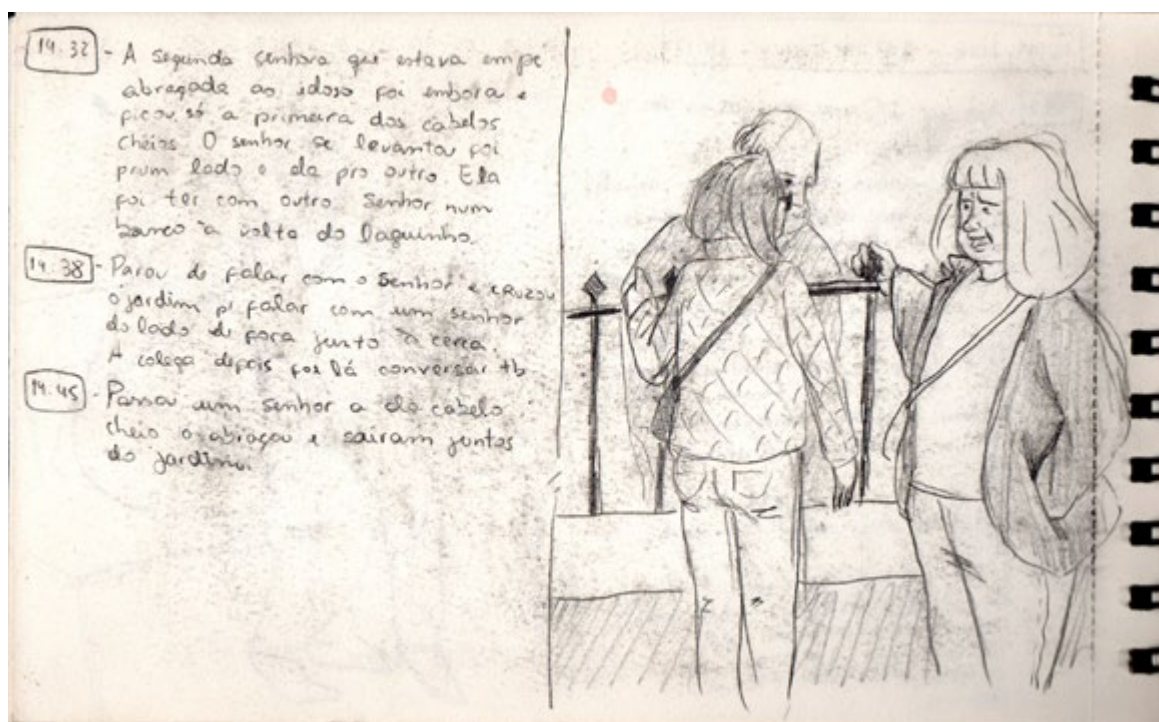 14:32 - A segunda senhora que estava em pé
abraçada ao idoso foi embora e
ficou só a primeira dos cabelos
cheios. O senhor se levantou foi
prum lado e ela pro outro. Ela
foi ter com outro senhor num
banco à volta do laguinho.
14:38 - Parou de falar com o senhor e CRUZOU
o jardim p/ falar com um senhor
do lado de fora junto à cerca.
A colega depois foi lá conversar tb
14:45 - Passou um senhor a do cabelo
cheio o abraçou e sairam juntos
do jardim.